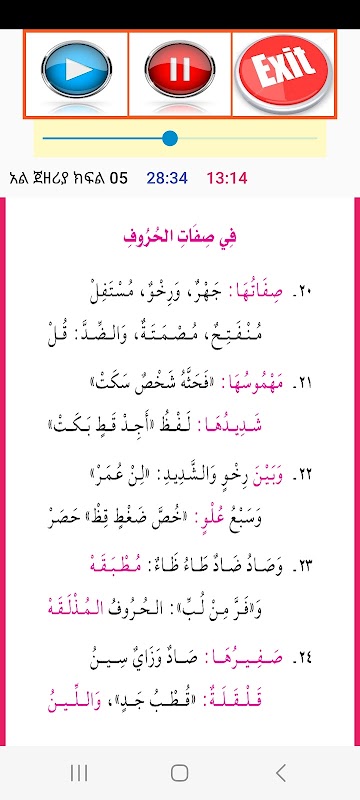 Exit
አል ጀዘሪያ ክፍል 05 28:34 13:14
فِي صِفَاتِ الحُرُوفِ
٢٠. صِفَاتُهَا: جَهْرٌ، وَرِخْوٌ، مُسْتَفِلْ
مُنْفَتِحٌ، مُصْمَتَةٌ، وَالضِّدَّ: قُلْ
٢١. مَهْمُوسُهَا: «فَحَثَّهُ شَخْصٌ سَكَتْ»
شَدِيدُهَا: لَفْظُ «أَجِدْ قَطٍ بَكَتْ»
٢٢. وَبَيْنَ رِخْوٍ وَالشَّدِيدِ: «لِنْ عُمَرْ»
وَسَبْعُ عُلْوٍ: «خُصَّ ضَغْطٍ قِظْ» حَصَرْ
٢٣. وَصَادُ ضَادٌ طَاءُ ظَاءٌ: مُطْبَقَهْ
وَ«فَرَّ مِنْ لُبِّ»: الحُرُوفُ المُذْلَقَهْ
٢٤. صَفِيرُهَا: صَادٌ وَزَايٌ سِينُ
قَلْقَلَةٌ: «قُطْبُ جَدٍ»، وَاللِّينُ